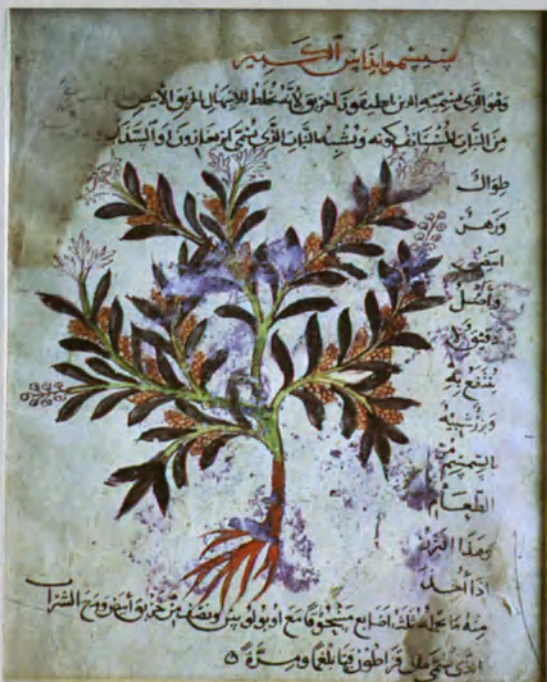 سيسمويداس الكبير
وهو الذي يسميه الذين انطيقون اخربق لانه يخلط للاسهال الخربق الابيض
من النبات المستانف كونه ويشبه النبات الذي يسمى ايريغارون او السذاب
طوال
وزهر
ابيض
وأصل
دقيق لا
ينتفع به
وبزر شبيه
بالسمسم مر
الطعام
وهذا البزر
اذا أخذ
منه ما يحمل ثلث اصابع مسحوقا مع اوبولوس ونصف من خربق ابيض ومع الشراب
الذي يسمى ملى قراطون قيا بلغما ومرة